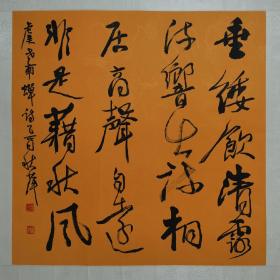 垂緌飲清露
流響出疏桐
居高聲自遠
非是藉秋風
虞世南蟬詩乙酉秋